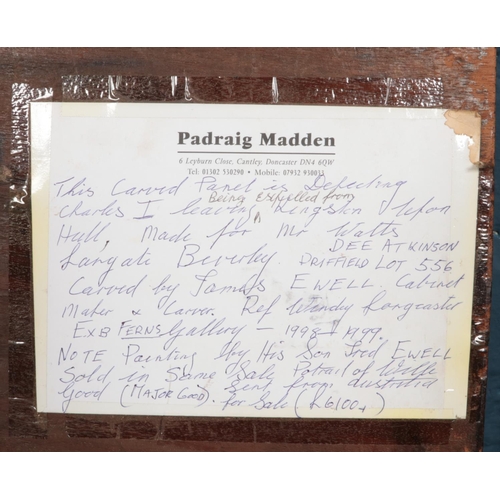 Padraig Madden
6 Leyburn Close, Cantley, Doncaster DN4 6QW
Tel: 01302 530290 • Mobile: 07932 930033
This Carved Panel is Depecting
Being Expelled from
Charles I leaving Kingston Upon
Hull, Made for Mr Watts
DEE ATKINSON
Largate Beverley. DRIFFIELD LOT 556
Carved by James EWELL. Cabinet
Maker & Carver. Ref Wendy Longcaster
EXB FERNS Gallery - 1998 - 1999.
NOTE Painting by His Son Fred EWELL
Sold in Same Sale Potrait of Wille
Good (MAJOR GOOD). Sent from Australia
for Sale (£6100+)